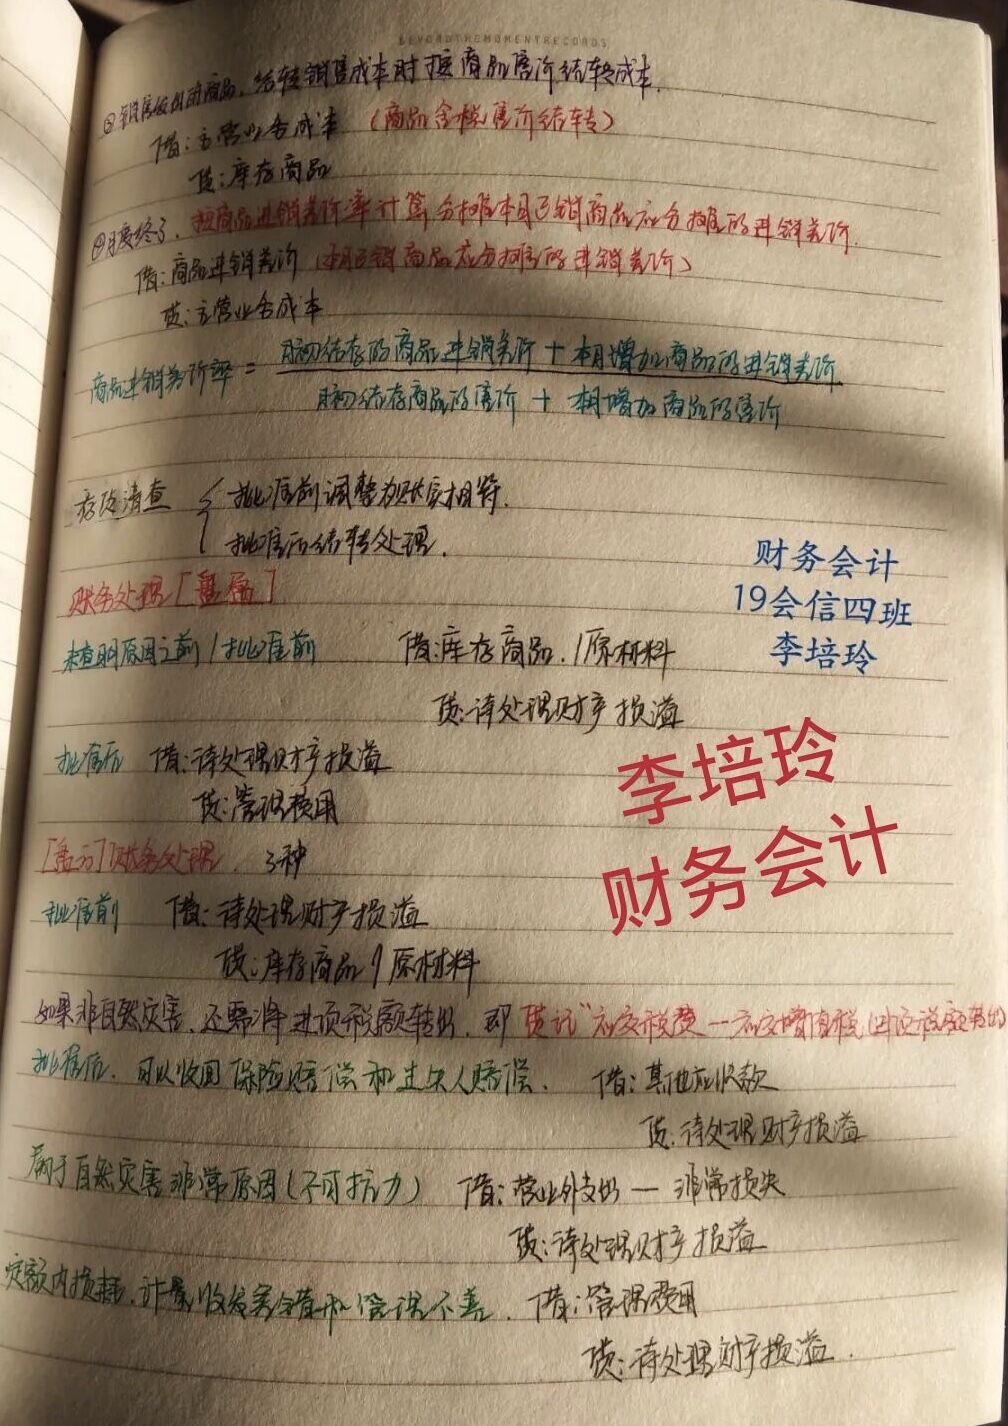 BEYONDTHEMOMENTRECORDS
③销售收到的商品，结转销售成本时按商品售价结转成本.
借：主营业务成本 （商品含税售价结转）
贷：库存商品
④月度终了，按商品进销差价率计算分摊本月已销商品应分摊的进销差价.
借：商品进销差价（本月已销商品应分摊的进销差价）
贷：主营业务成本
商品进销差价率 = 月初结存的商品进销差价 + 本月增加商品的进销差价
月初结存商品的售价 + 本月增加商品的售价
存货清查 { 批准前调整为账实相符.
批准后结转处理.
财务会计
19会信四班
李培玲
账务处理［盘盈］
未查明原因之前/批准前 借：库存商品./原材料
贷：待处理财产损溢
批准后 借：待处理财产损溢
贷：管理费用
李培玲
财务会计
［盘亏］账务处理. 3种
批准前 借：待处理财产损溢
贷：库存商品/原材料
如果非自然灾害，还需将进项税额转出，即 贷记“应交税费—应交增值税(进项税额转出)
批准后，可以收回保险赔偿和过失人赔偿. 借：其他应收款
贷：待处理财产损溢
属于自然灾害非常原因(不可抗力) 借：营业外支出 — 非常损失
贷：待处理财产损溢
定额内损耗，计量收发差错和管理不善. 借：管理费用
贷：待处理财产损溢.